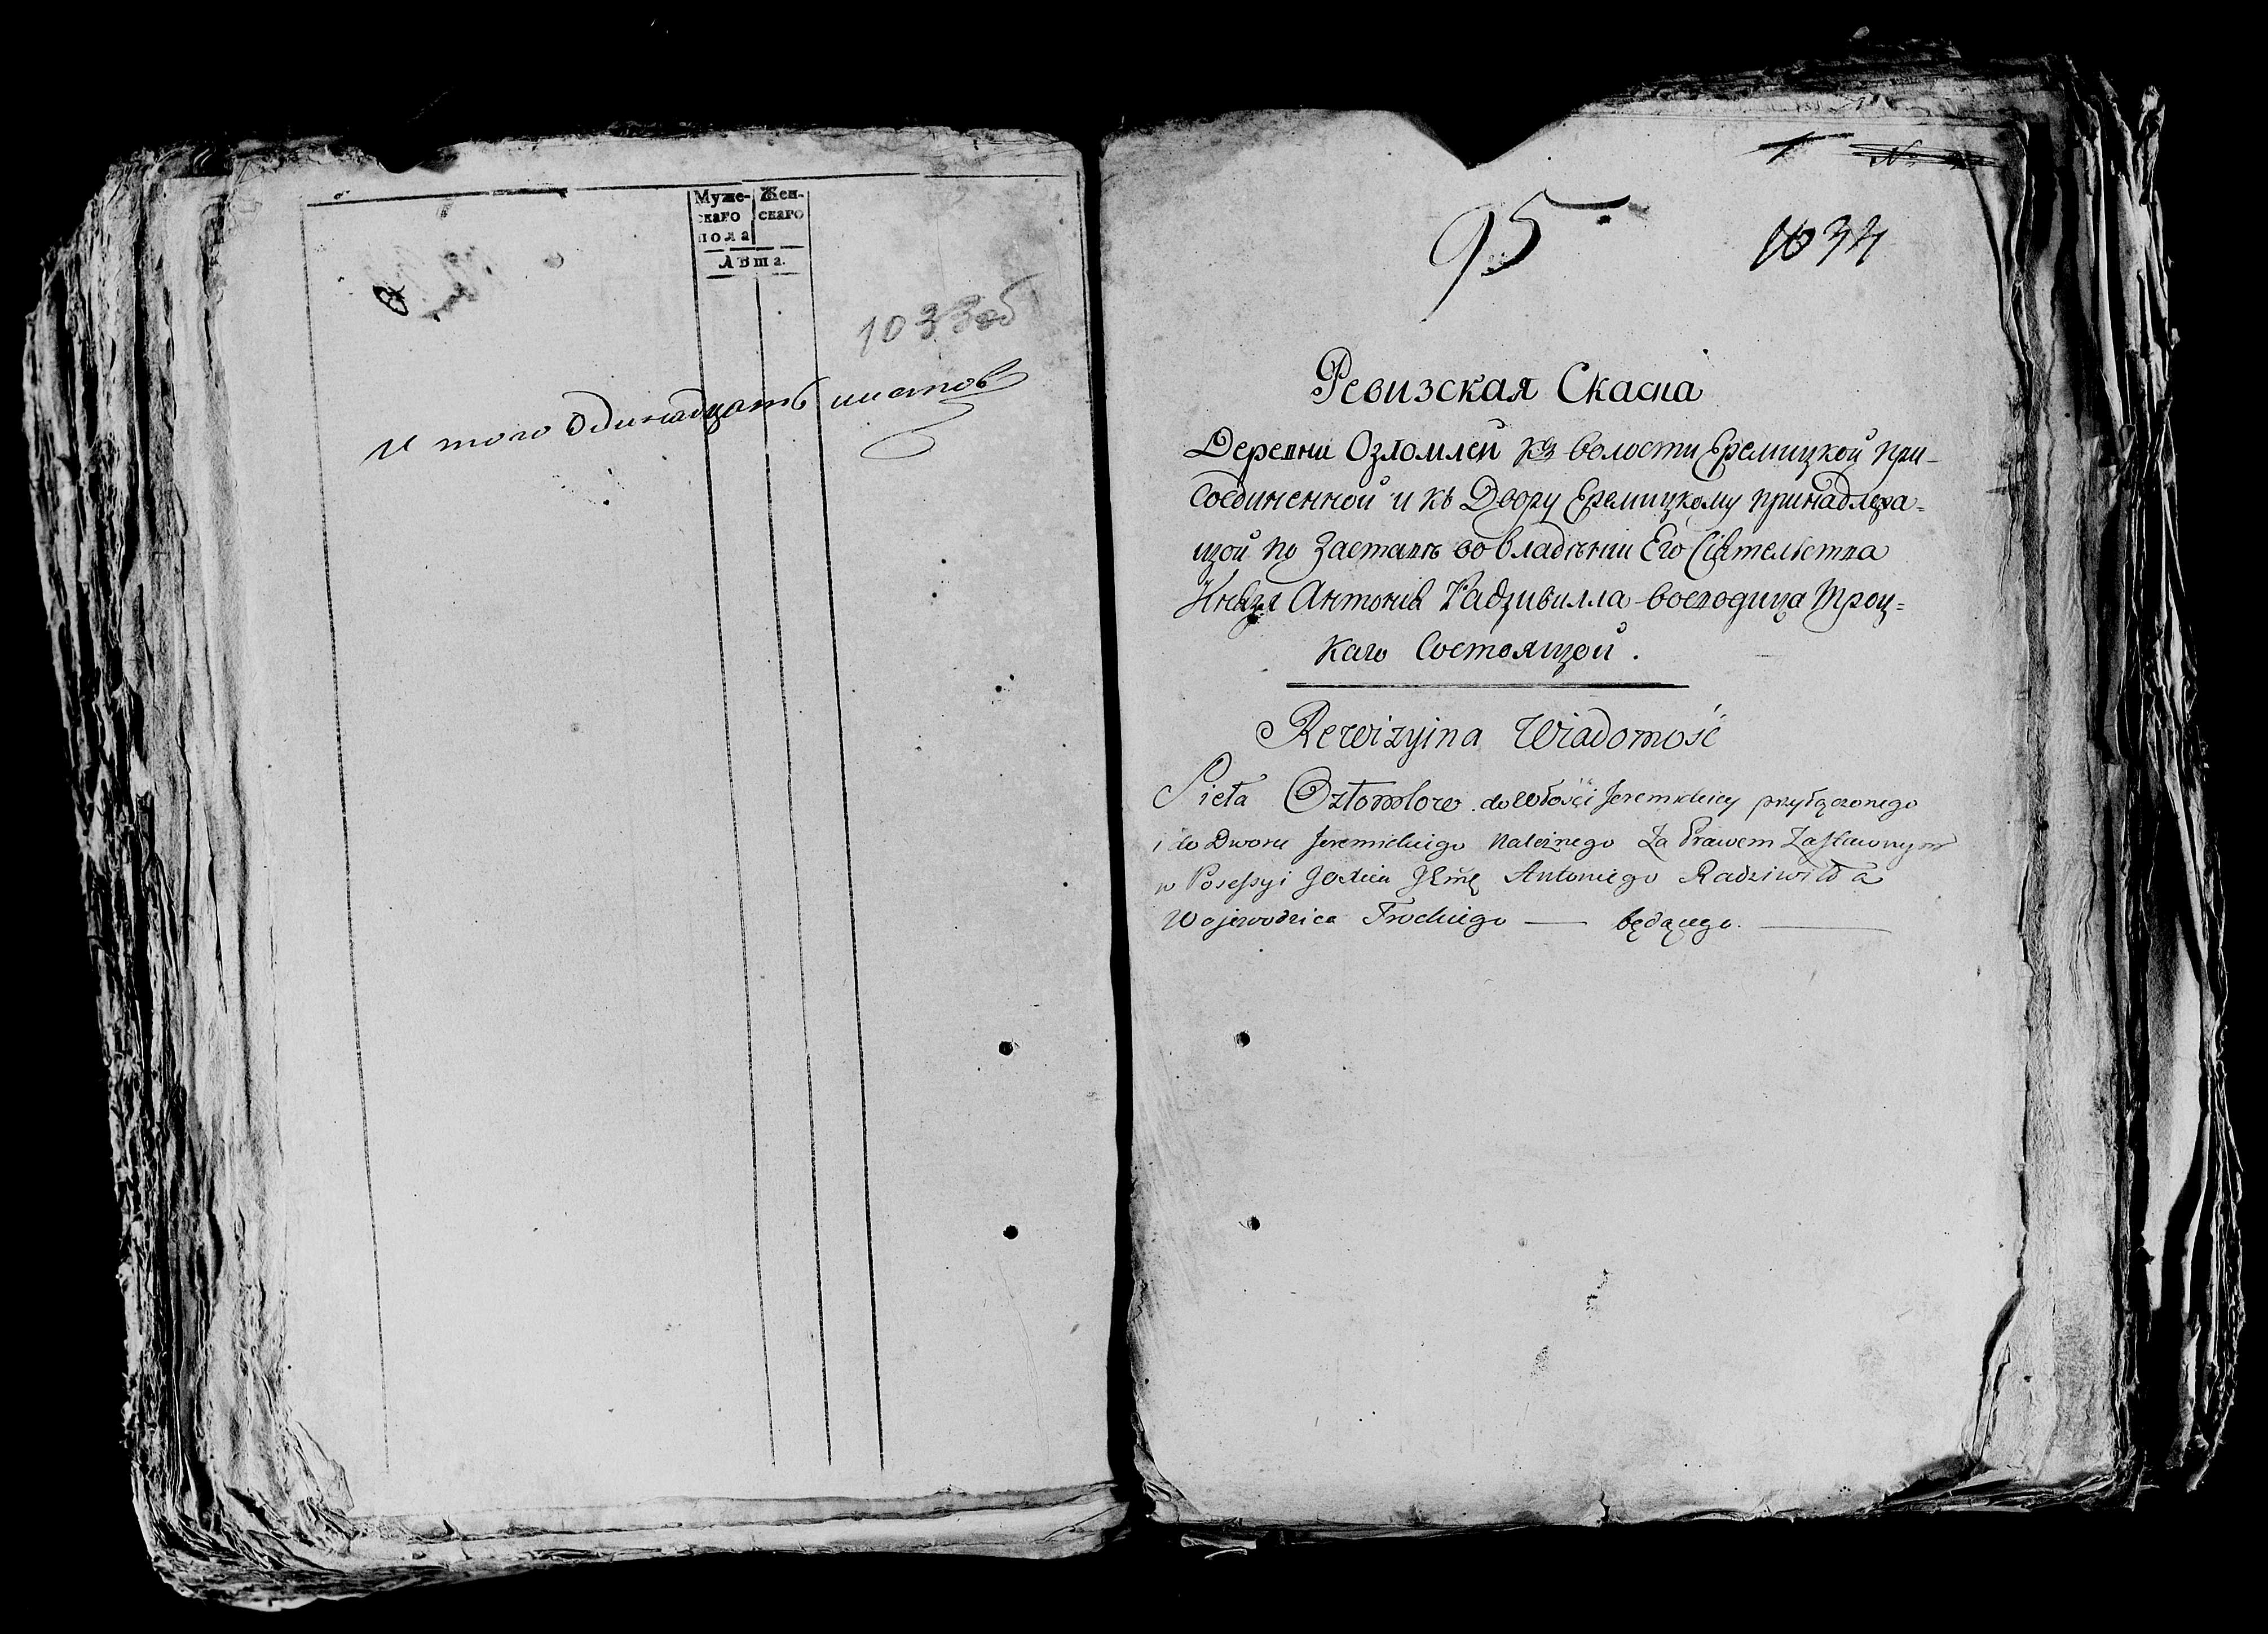 Муже-
скаго
пола
Жен-
скаго
Лѣта.
1033об
И того Одинадцать листов
95
1034
Ревизская Скаска
Деревни Озломлей къ волости Еремицкой при-
соединенной и къ Двору Еремицкому принадлежа=
щой по Заставѣ во владѣнии Его Сіятельства
Князя Антонія Радзивилла воеводица Троц=
каго Состоящой.
Rewizyina Wiadomość
Sieła Oztomlow do Włości Jeremickiey przyłączonego
i do Dworu Jeremickiego należnego za Prawem Zastawnym
w Possessyi JO Xcia JEmę Antoniego Radziwiłła
Wojewodzica Trockiego — będącego. —